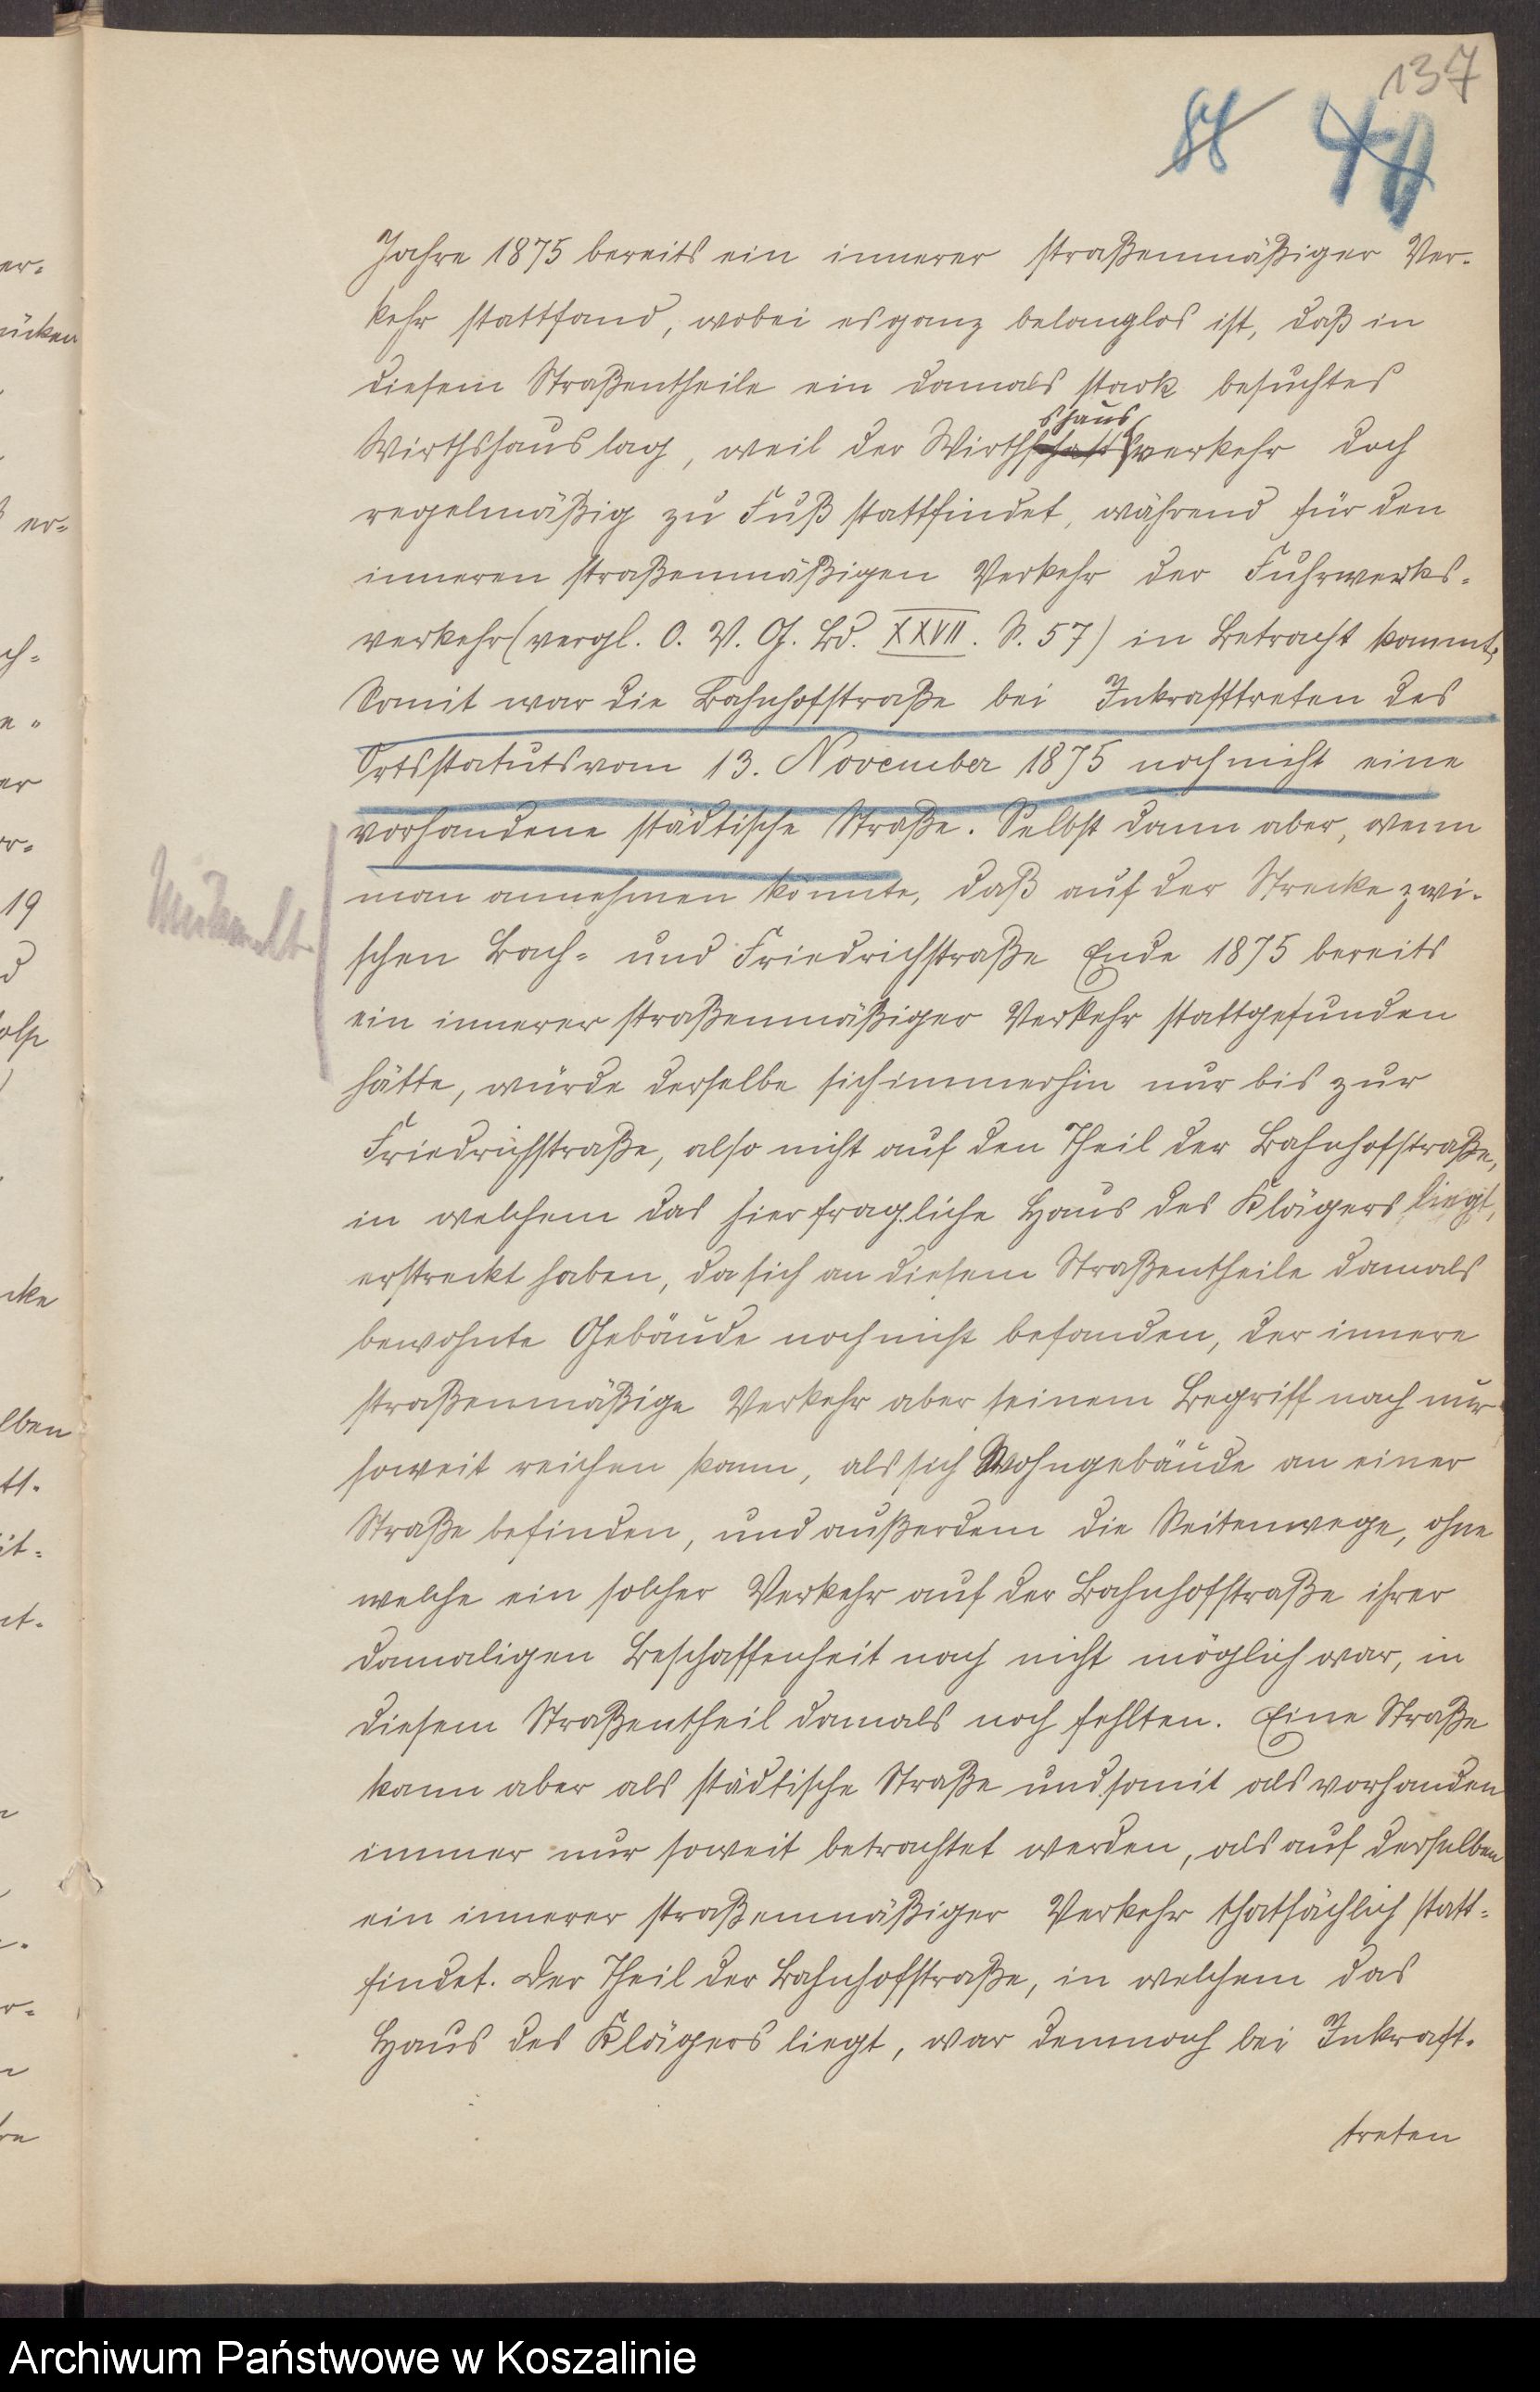 137
Jahre 1875 bereits ein innerer straßenmäßiger Ver-
kehr stattfand, wobei es ganz belanglos ist, daß in
diesem Straßentheile ein damals stark besuchtes
shaus
Wirthshaus lag, weil der Wirthschaftsverkehr doch
regelmäßig zu Fuß stattfindet, während für den
inneren straßenmäßigen Verkehr der Fuhrwerks-
verkehr (vergl. O. V. G. Bd. XXVII. S. 57) in Betracht kommt,
Somit war die Bahnhofstraße bei Inkrafttreten des
Ortsstatuts vom 13. November 1875 noch nicht eine
vorhandene städtische Straße. Selbst dann aber, wenn
man annehmen könnte, daß auf der Strecke zwi-
schen Bach- und Friedrichstraße Ende 1875 bereits
ein innerer straßenmäßiger Verkehr stattgefunden
hätte, würde derselbe sich immerhin nur bis zur
Friedrichstraße, also nicht auf den Theil der Bahnhofstraße,
in welchem das hier fragliche Haus des Klägers liegt,
erstreckt haben, da sich an diesem Straßentheile damals
bewohnte Gebäude noch nicht befanden, der innere
straßenmäßige Verkehr aber seinem Begriff nach nur
soweit reichen kann, als sich Wohngebäude an einer
Straße befinden, und außerdem die Seitenwege, ohne
welche ein solcher Verkehr auf der Bahnhofstraße ihrer
damaligen Beschaffenheit nach nicht möglich war, in
diesem Straßentheil damals noch fehlten. Eine Straße
kann aber als städtische Straße und somit als vorhanden
immer nur soweit betrachtet werden, als auf derselben
ein innerer straßenmäßiger Verkehr thatsächlich statt-
findet. Der Theil der Bahnhofstraße, in welchem das
Haus des Klägers liegt, war demnach bei Inkraft-
treten
Archiwum Państwowe w Koszalinie